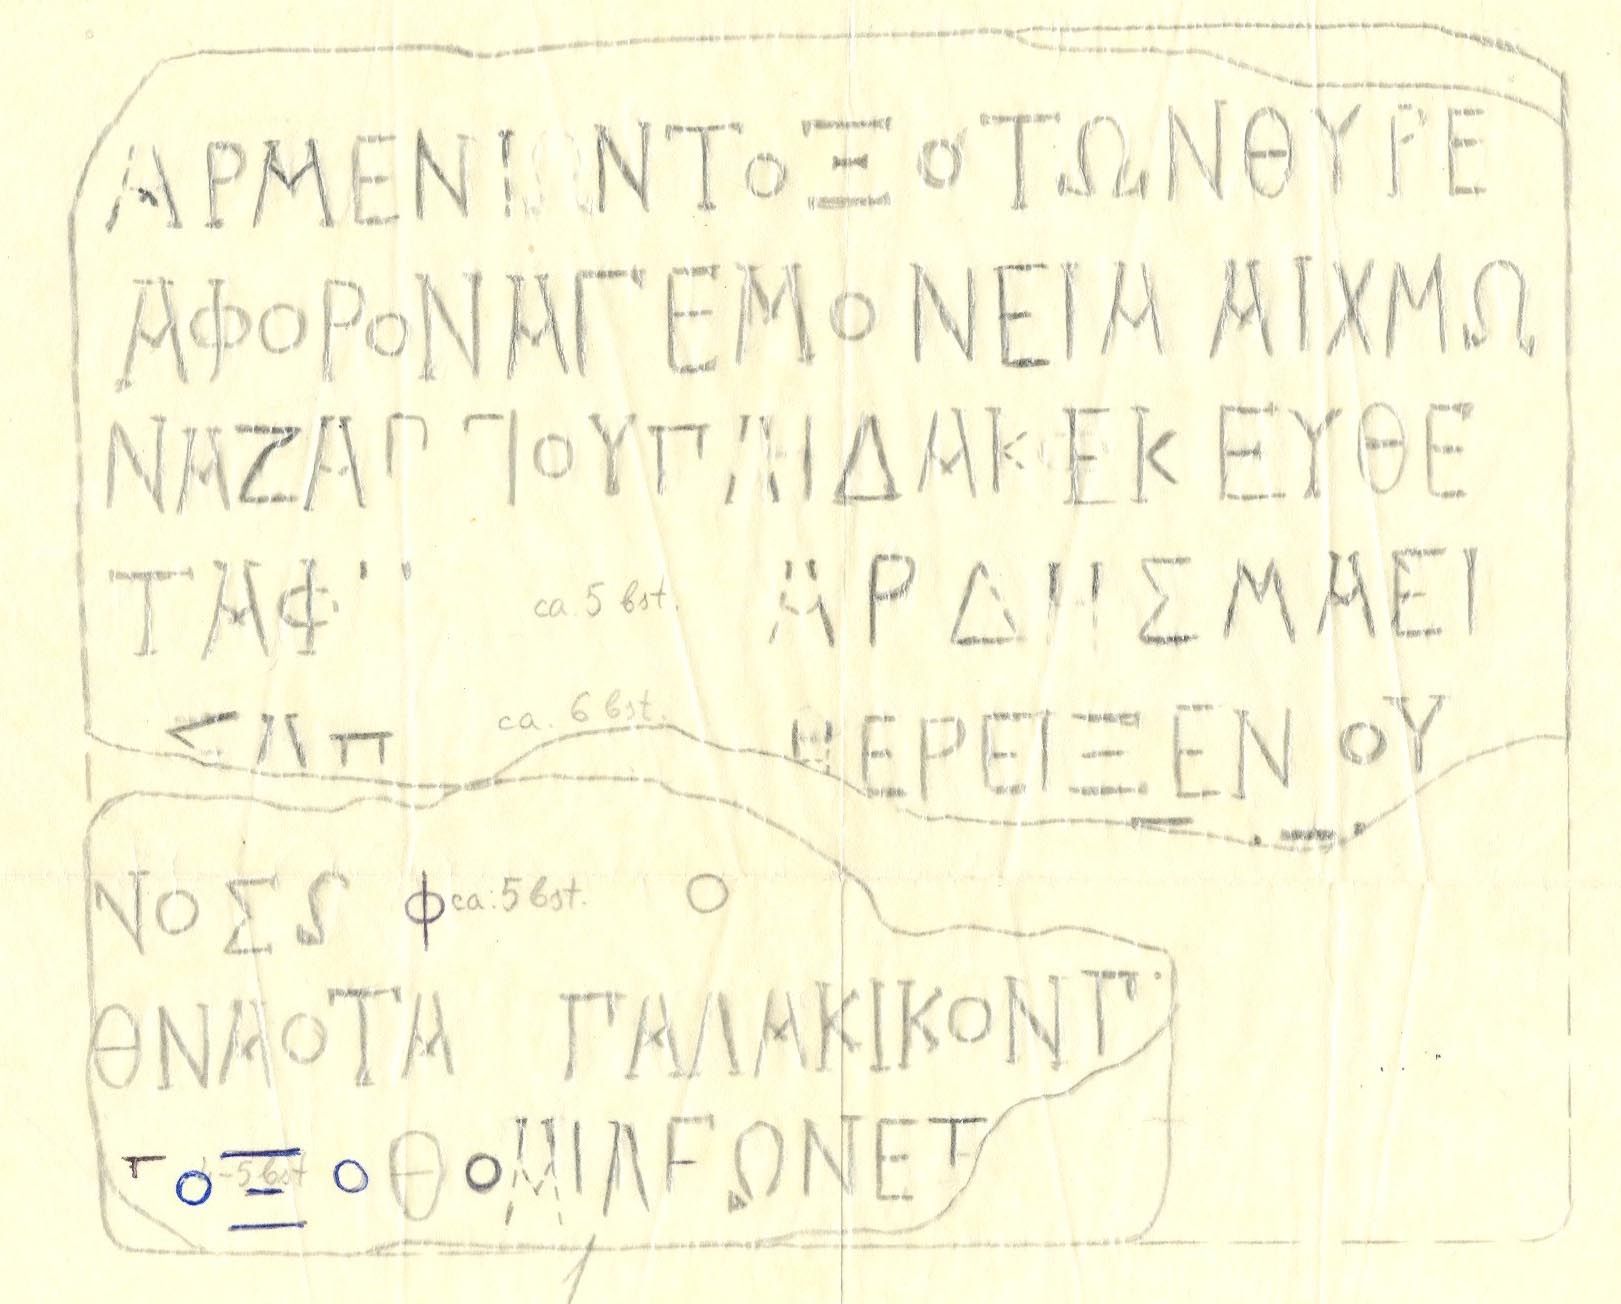 ΑΡΜΕΝΙΩΝΤΟΞΟΤΩΝΘΥΡΕ
ΑΦΟΡΟΝΑΓΕΜΟΝΕΙΑΑΙΧΜΩ
ΝΑΖΑΓ ΟΥΠΛΙΔΑΚΕΚΕΥΘΕ
ΤΑΦ ca. 5 bst. ΑΡΔΗΣΜΑΕΙ
ca. 6 bst. ΗΕΡΕΙΞΕΝΟΥ
ΝΟΣ Φ ca. 5 bst. Ο
ΘΝΑΟΤΑ ΓΑΛΑΚΙΚΟΝΤ
ΤΟΞΟΘΟΜΙΛΕΩΝΕΤ